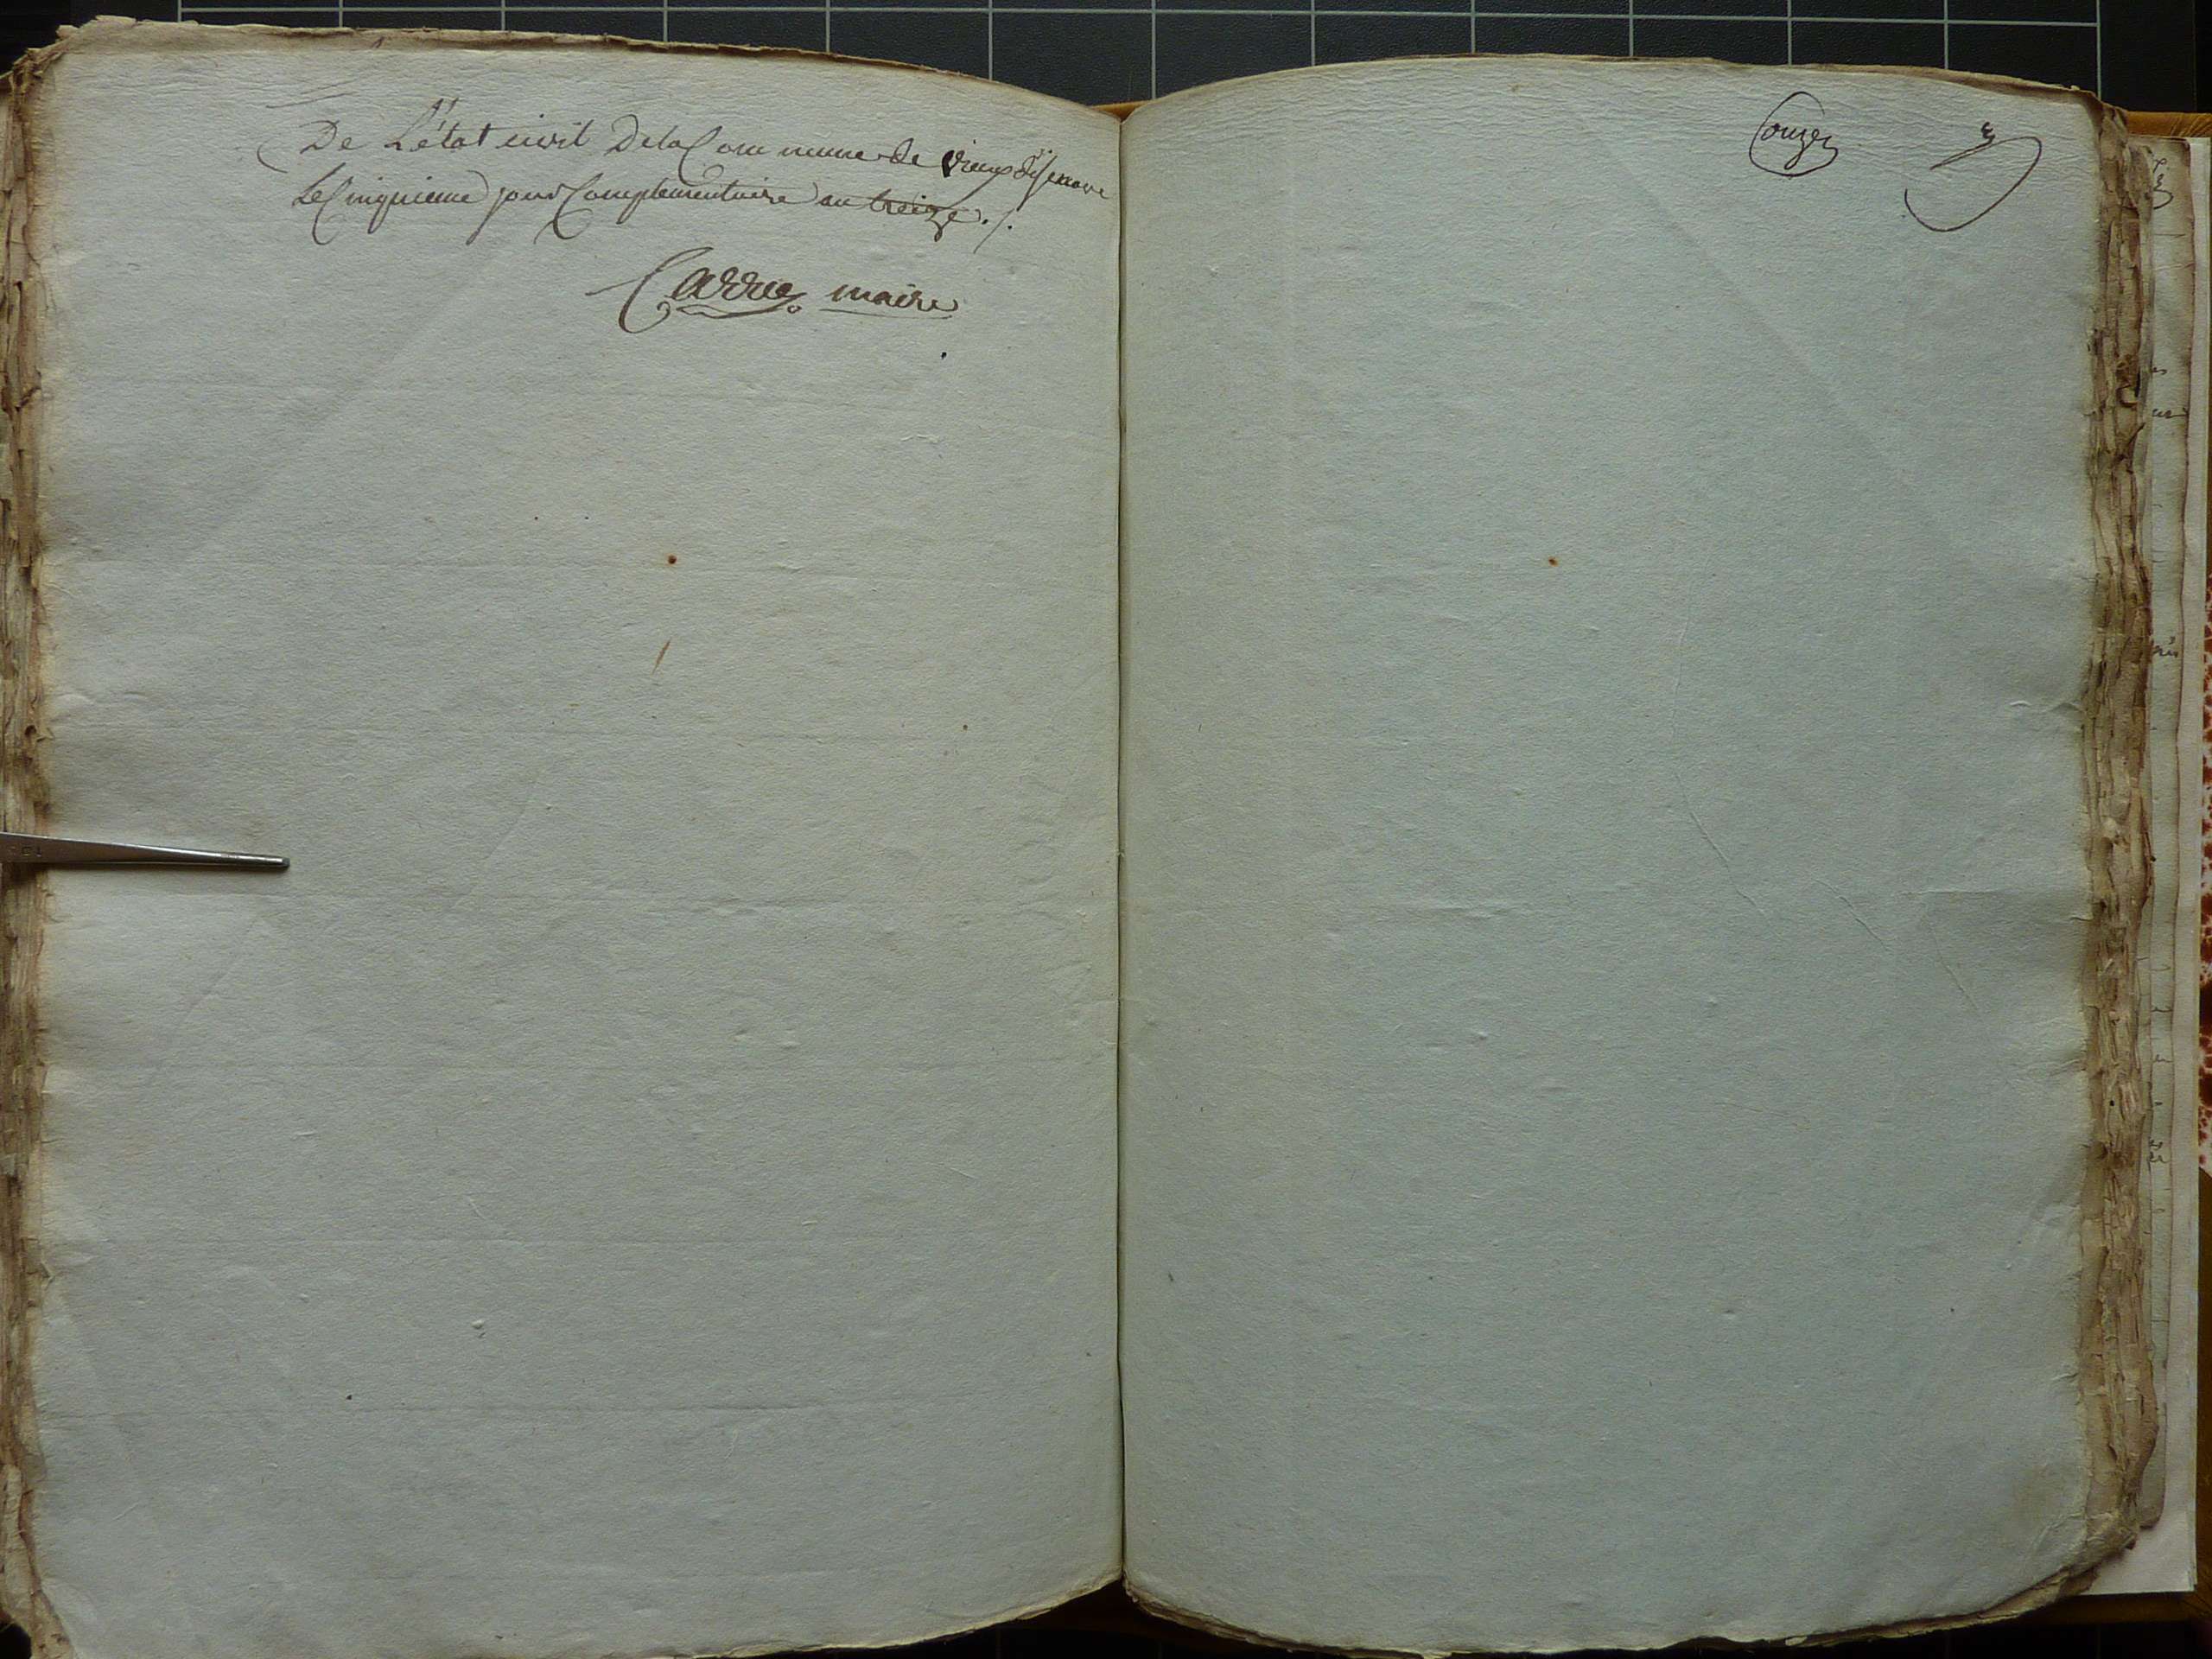 De L'état civil De la Commune de vieux
Le Cinquieme jour Complementaire an treize ./.
Carrue maire
onze